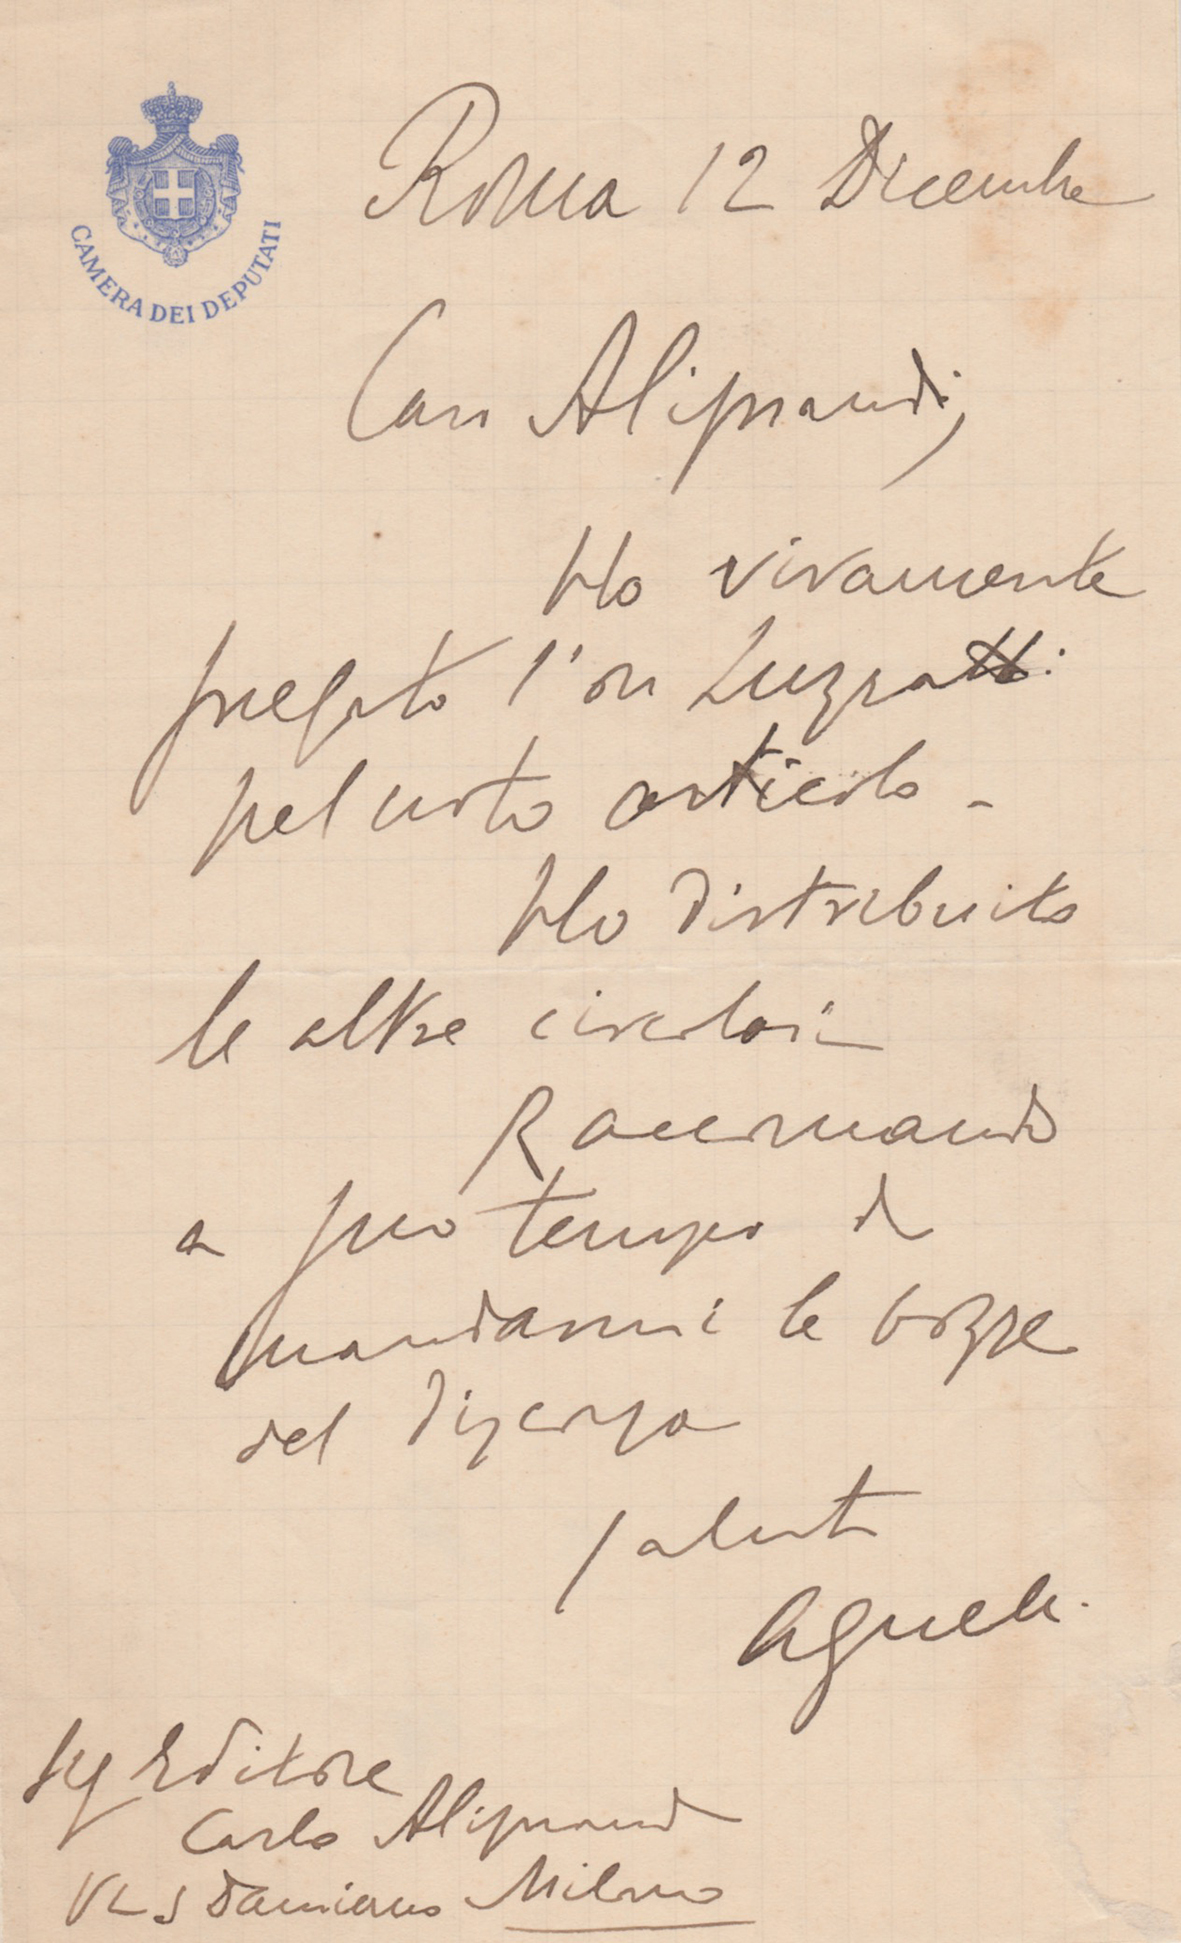 CAMERA DEI DEPUTATI
Roma 12 Dicembre
Caro Aliprandi,
Ho vivamente
pregato l'on Luzzatti
pel noto articolo -
Ho distribuito
le altre circolari
Raccomando
a suo tempo di
mandarmi le bozze
del discorso
saluti
Agnelli.
Sig Editore
Carlo Aliprandi
Via S Damiano Milano